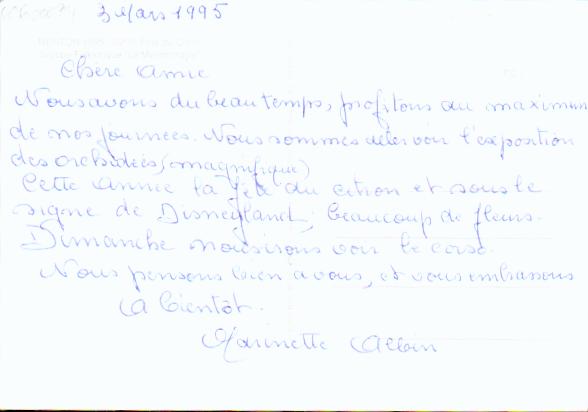 3 Mars 1995
Chère Amie
Nous avons du beau temps, profitons au maximum
de nos journées. Nous sommes aller voir l'exposition
des orchidées, (magnifique)
Cette année la fête du citron et sous le
signe de Disneyland, beaucoup de fleurs.
Dimanche nous irons voir le corso.
Nous pensons bien a vous, et vous embrassons
A bientôt.
Marinette Albin